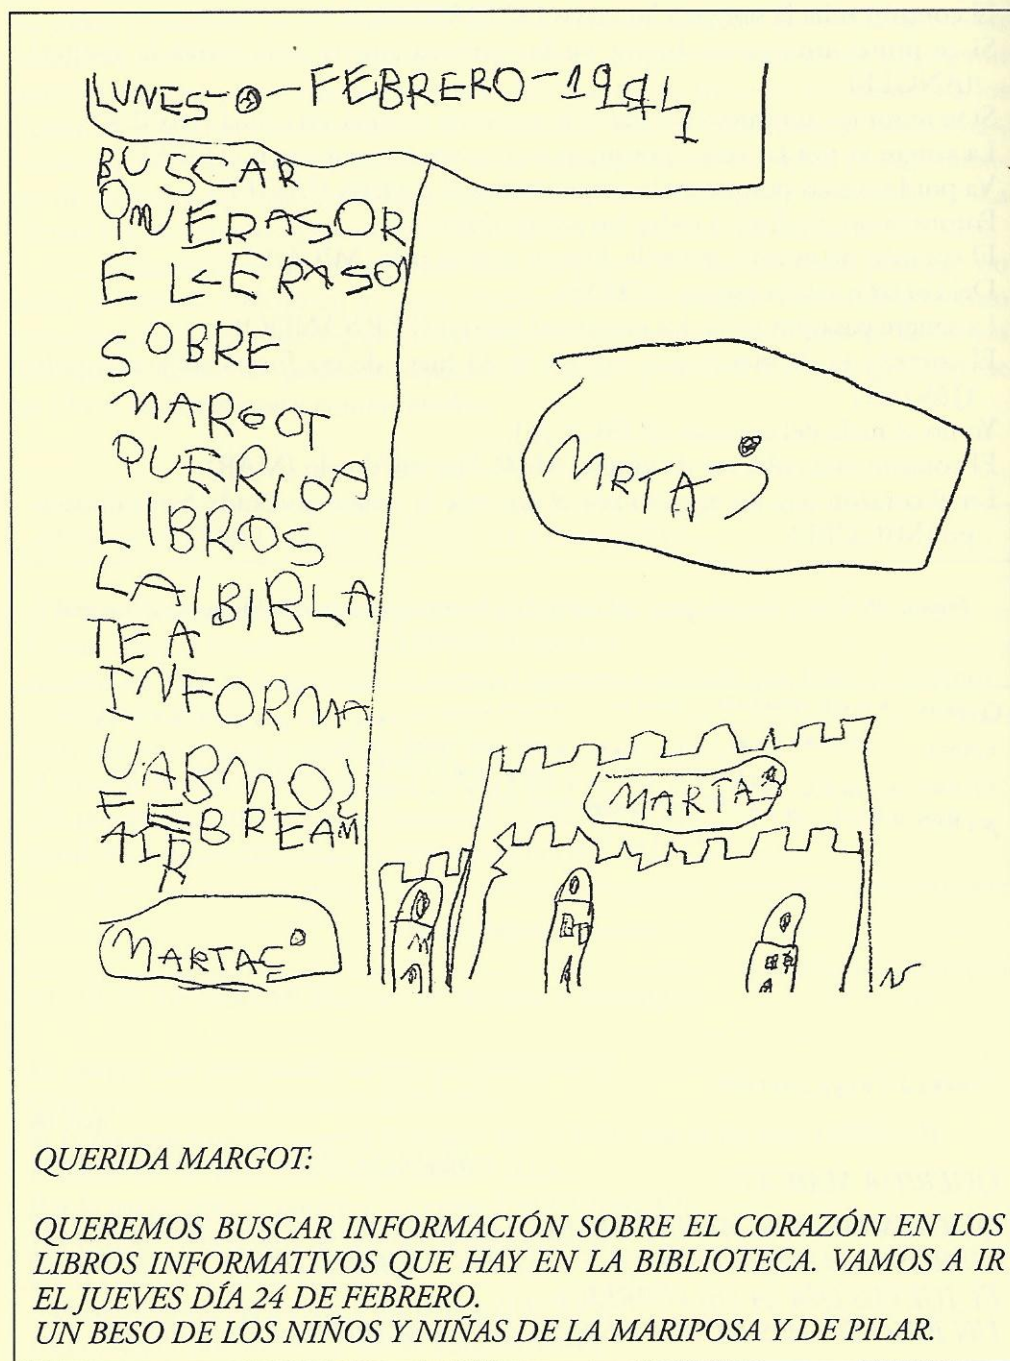 LUNES-8-FEBRERO-1994
BUSCAR
QNERASOR
EL<ERASO
SOBRE
MARGOT
QUERIDA
LIBROS
LAIBIBLA
TEA
INFORMA
UABMOS
FEBREAM
AIR
MARTAC
MRTA
MARTA
QUERIDA MARGOT:
QUEREMOS BUSCAR INFORMACIÓN SOBRE EL CORAZÓN EN LOS
LIBROS INFORMATIVOS QUE HAY EN LA BIBLIOTECA. VAMOS A IR
EL JUEVES DÍA 24 DE FEBRERO.
UN BESO DE LOS NIÑOS Y NIÑAS DE LA MARIPOSA Y DE PILAR.